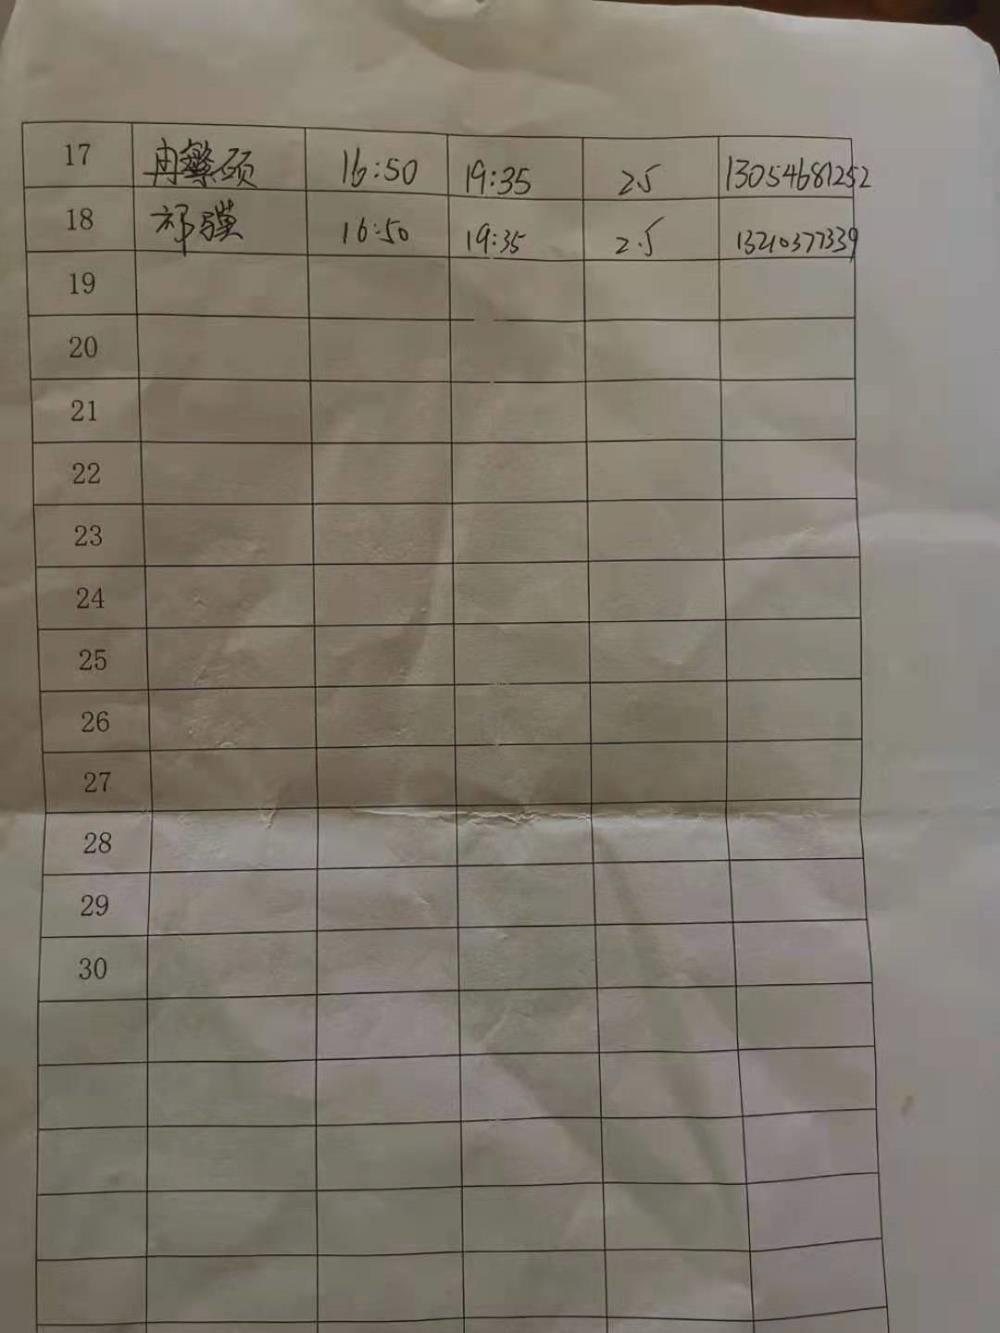 17 冉繁硕 16:50 19:35 2.5 13054681252
18 祁骥 16:50 19:35 2.5 13210377339
19
20
21
22
23
24
25
26
27
28
29
30